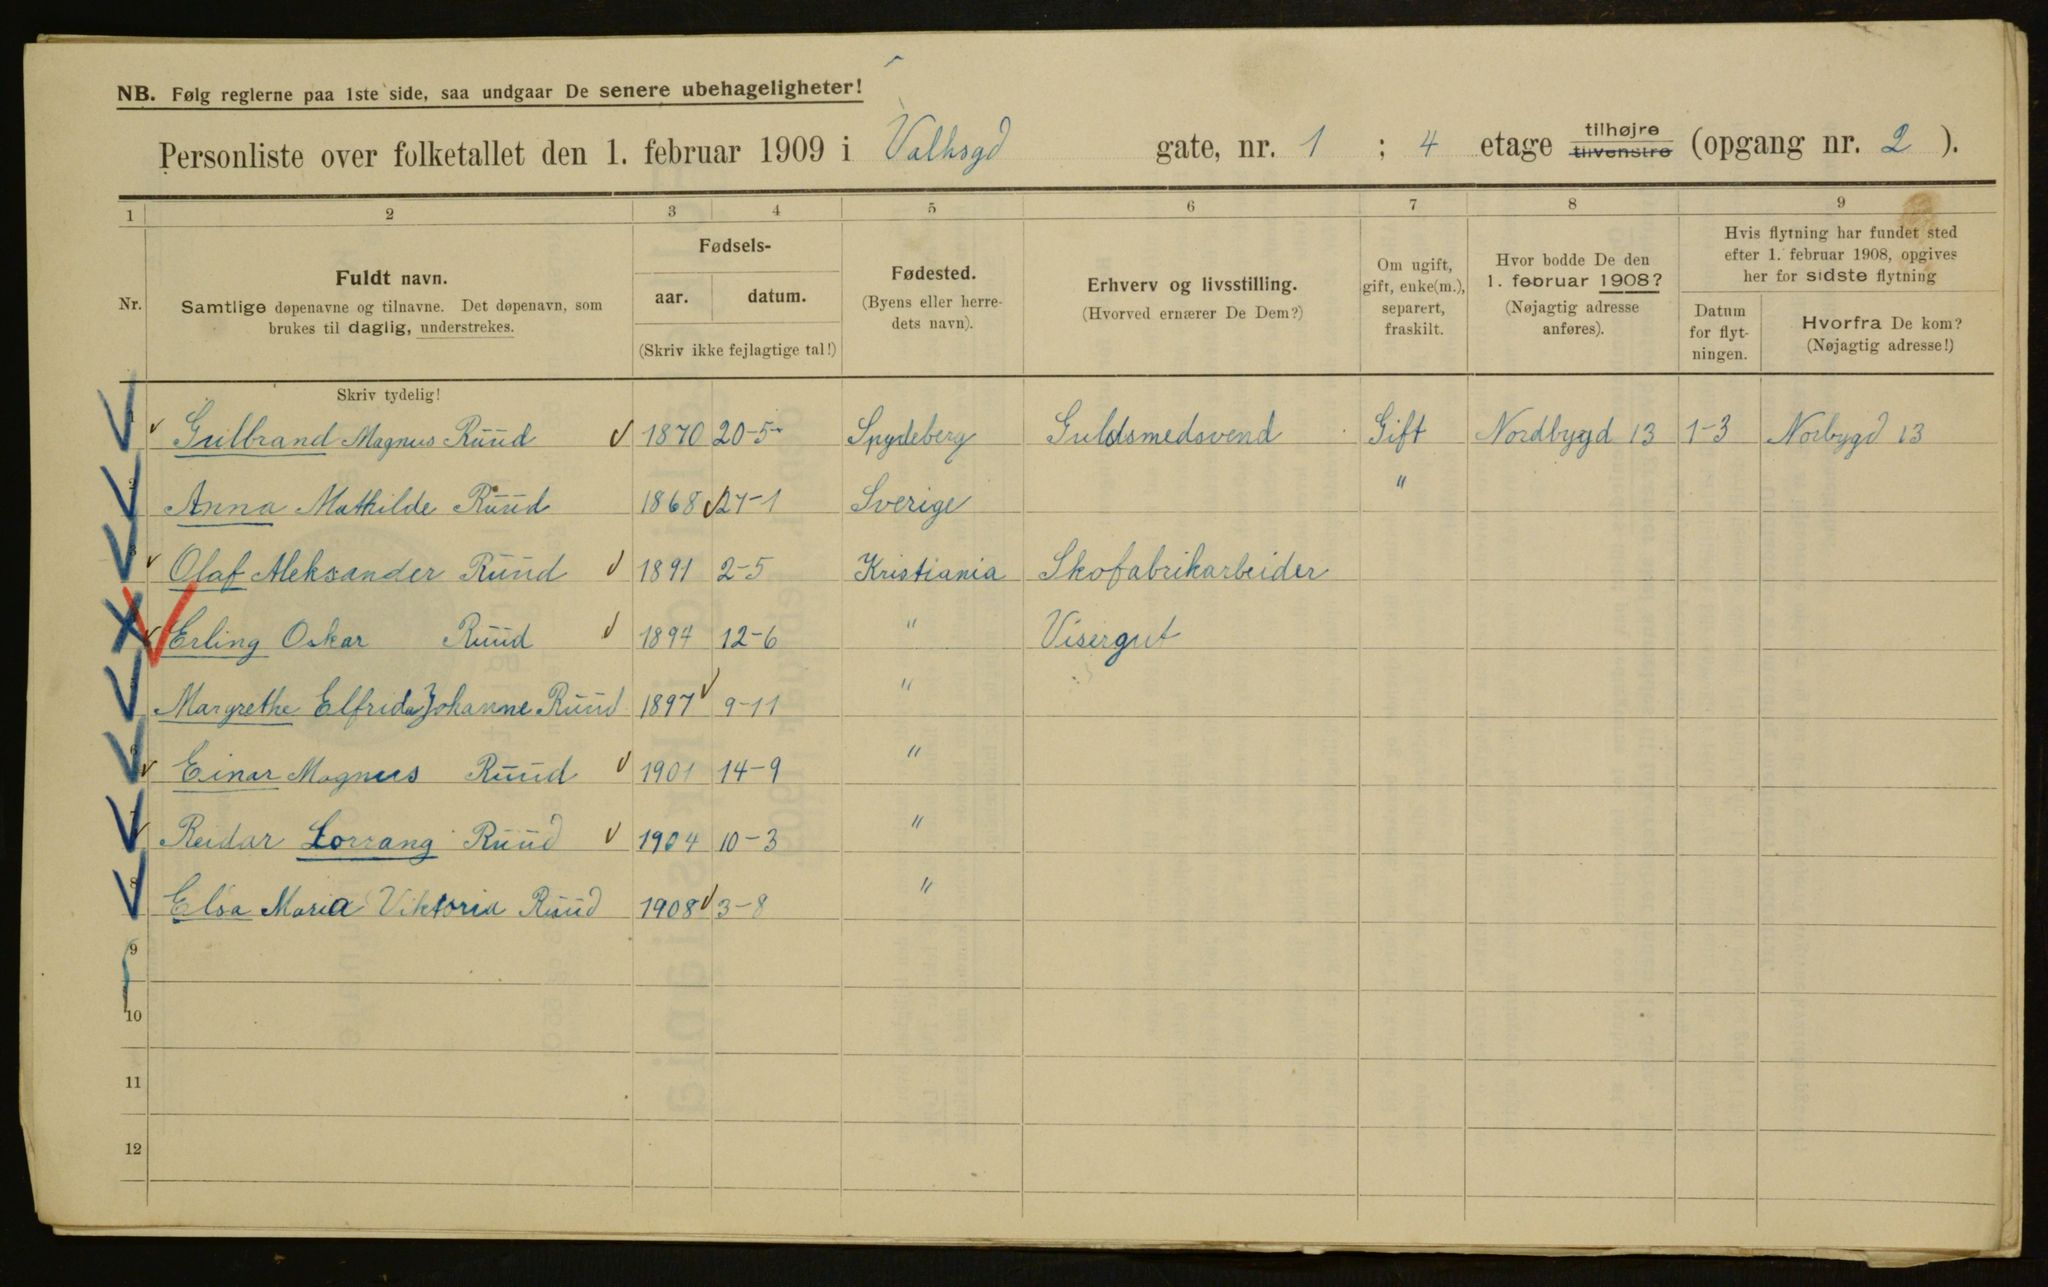 NB. Følg reglerne paa 1ste side, saa undgaar De senere ubehageligheter!
Personliste over folketallet den 1. februar 1909 i Valhsgd gate, nr. 1 ; 4 etage tilhøjre tilvenstre (opgang nr. 2 ).
1 2 3 4 5 6 7 8 9
Nr.
Fuldt navn.
Samtlige døpenavne og tilnavne. Det døpenavn, som
brukes til daglig, understrekes.
Fødsels-
aar. datum.
(Skriv ikke fejlagtige tal!)
Fødested.
(Byens eller herre-
dets navn).
Erhverv og livsstilling.
(Hvorved ernærer De Dem?)
Om ugift,
gift, enke(m.),
separert,
fraskilt.
Hvor bodde De den
1. februar 1908?
(Nøjagtig adresse
anføres).
Hvis flytning har fundet sted
efter 1. februar 1908, opgives
her for sidste flytning
Datum
for flyt-
ningen.
Hvorfra De kom?
(Nøjagtig adresse!)
Skriv tydelig!
1 Gulbrand Magnus Ruud 1870 20-5 Spydeberg Guldsmedsvend Gift Nordbygd 13 1-3 Norbygd 13
2 Anna Mathilde Ruud 1868 27-1 Sverige "
3 Olaf Aleksander Ruud 1891 2-5 Kristiania Skofabrikarbeider
Erling Oskar Ruud 1894 12-6 " Visergut
5 Margrethe Elfrida Johanne Ruud 1897 9-11 "
6 Einar Magnus Ruud 1901 14-9 "
7 Reidar Lorrang Ruud 1904 10-3 "
8 Elsa Maria Viktoria Ruud 1908 3-8 "
9
10
11
12